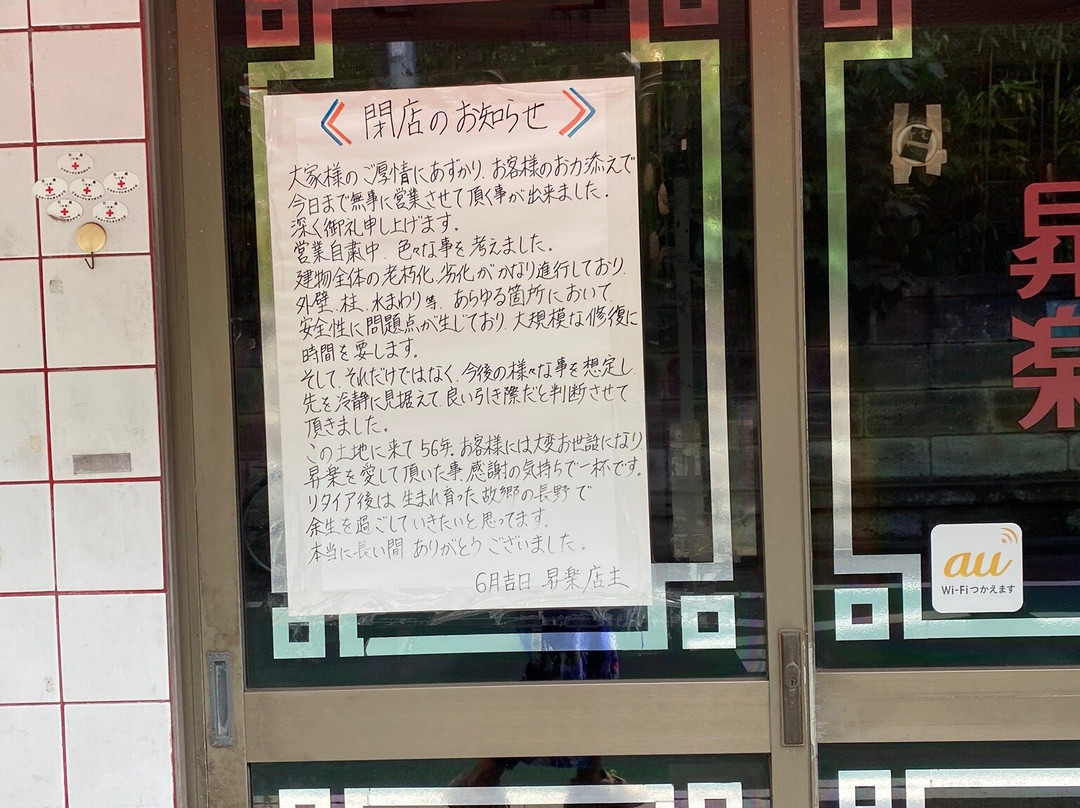 《 閉店のお知らせ 》
大家様のご厚情にあずかり、お客様のお力添えで
今日まで無事に営業させて頂く事が出来ました。
深く御礼申し上げます。
営業自粛中、色々な事を考えました。
建物全体の老朽化、劣化がかなり進行しており、
外壁、柱、水まわり等、あらゆる箇所において
安全性に問題点が生じており、大規模な修復に
時間を要します。
そして、それだけではなく、今後の様々な事を想定し
先を冷静に見据えて、良い引き際だと判断させて
頂きました。
この土地に来て56年。お客様には大変お世話になり
昇楽を愛して頂いた事、感謝の気持ちで一杯です。
リタイア後は、生まれ育った故郷の長野で
余生を過ごしていきたいと思ってます。
本当に長い間 ありがとうございました。
6月吉日 昇楽店主
昇楽
au
Wi-Fiつかえます